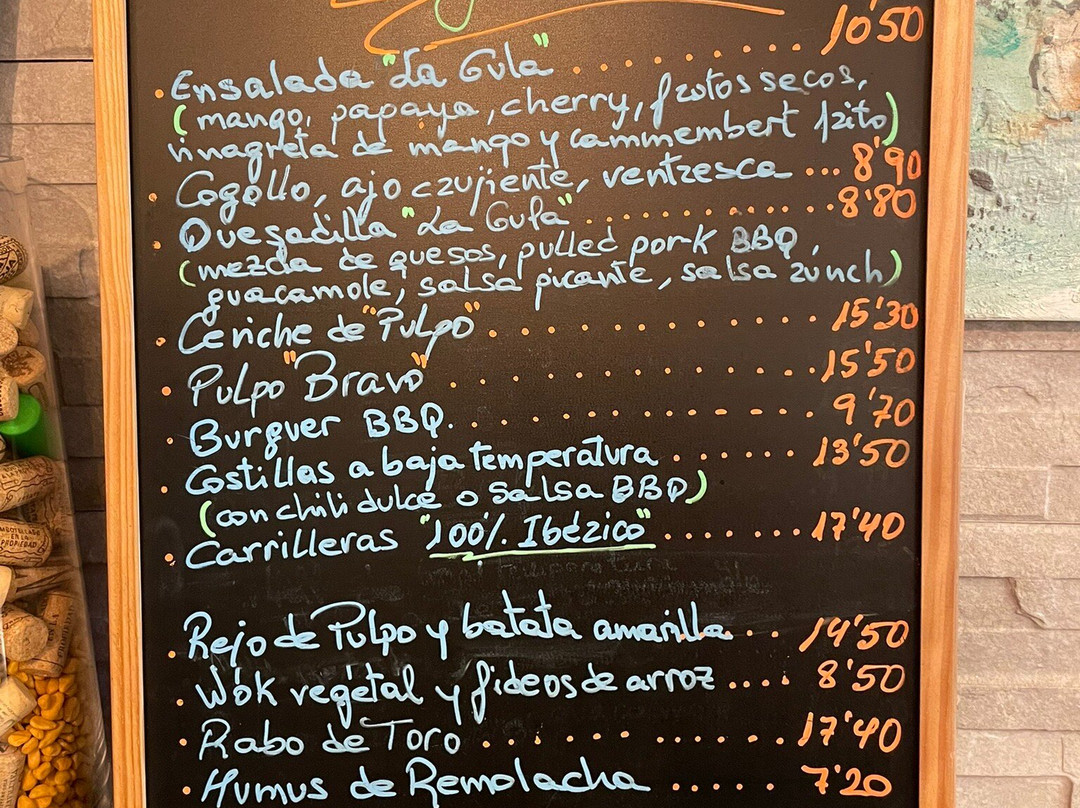 . Ensalada "La Gula" ........ 10'50
(mango, papaya, cherry, frutos secos,
vinagreta de mango y cammembert frito)
. Cogollo, ajo crujiente, ventresca ... 8'90
. Quesadilla "La Gula" ............. 8'80
(mezcla de quesos, pulled pork BBQ,
guacamole, salsa picante, salsa ranch)
. Ceviche de "Pulpo" ............ 15'30
. Pulpo "Bravo" ............. 15'50
. Burguer BBQ. ............ 9'70
. Costillas a baja temperatura ...... 13'50
(con chili dulce o salsa BBQ)
. Carrilleras "100% Ibérico" ....... 17'40
. Rejo de Pulpo y batata amarilla... 14'50
. Wok vegetal y fideos de arroz .... 8'50
. Rabo de Toro ........... 17'40
. Humus de Remolacha ..... 7'20
EMBOTELLADO
EN LA
PROPIEDAD